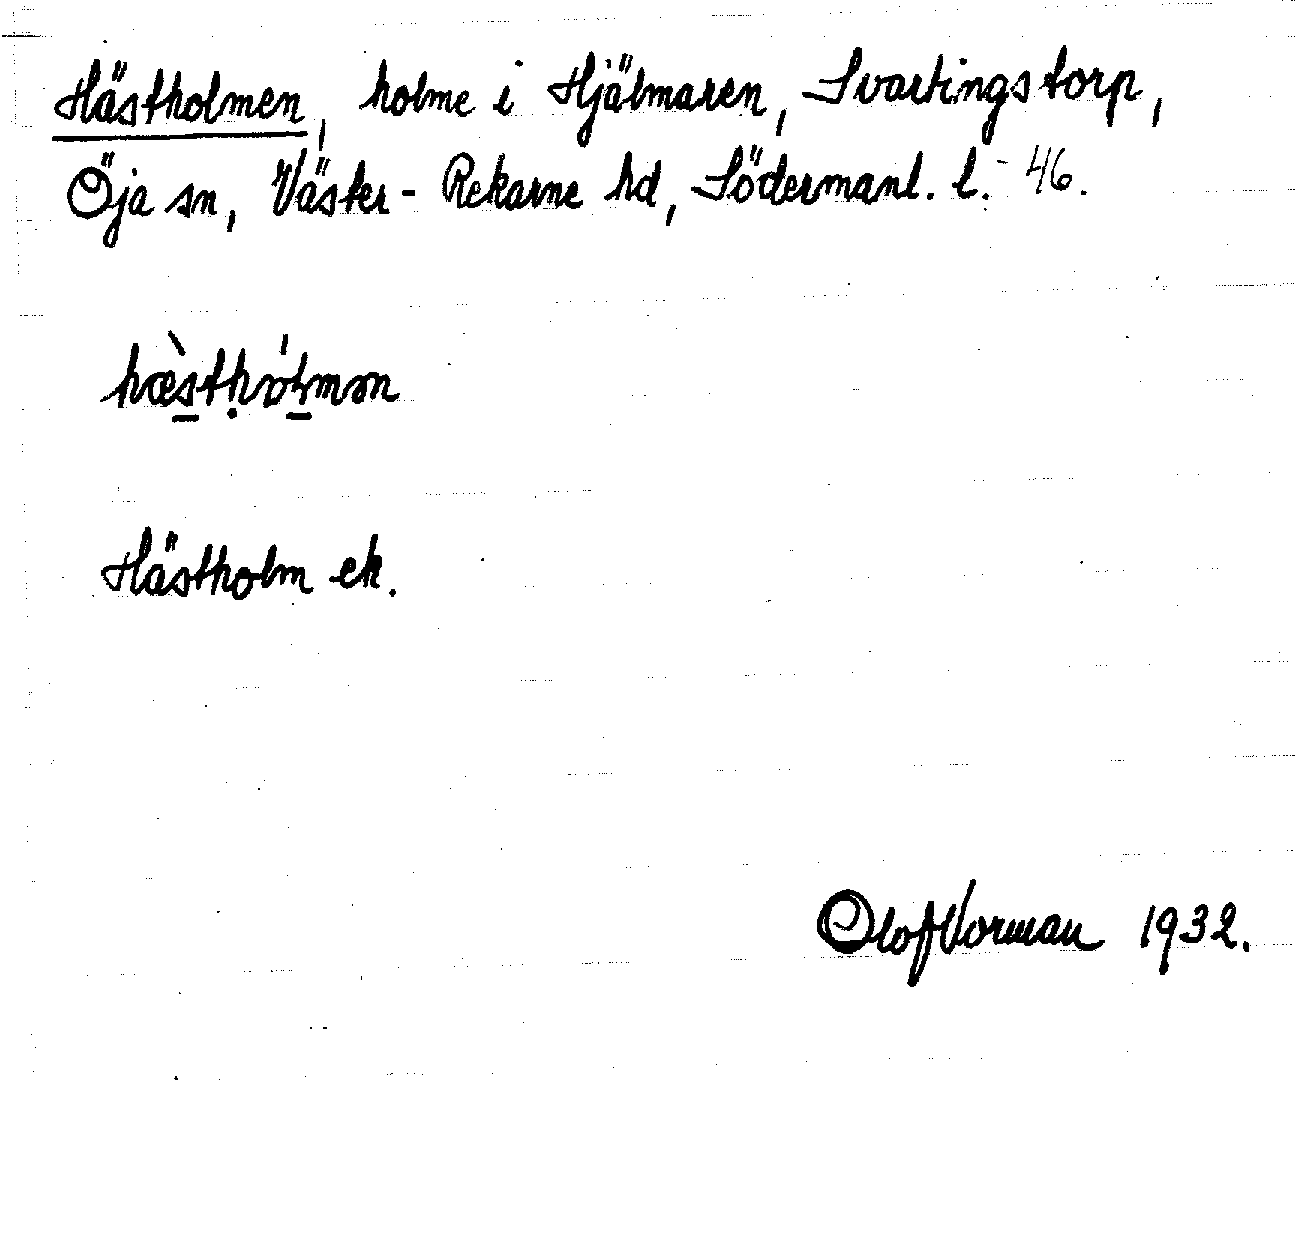 Hästholmen, holme i Hjälmaren, Svartingstorp,
Öja sn, Väster-Rekarne hd, Södermanl. l. 46.
hæ̀stḥɷ́ɫmən
Hästholm ek.
Olof Vorman 1932.